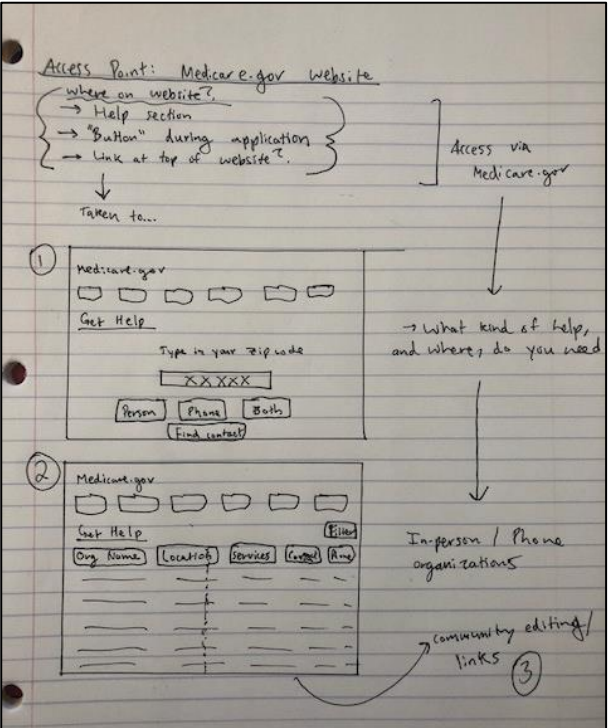 Access Point: Medicare.gov website
where on website?
→ Help section
→ "Button" during application
→ Link at top of website?
Access via
Medicare.gov
Taken to...
1
Medicare.gov
Get Help
Type in your zip code
XXXXX
Person Phone Both
Find contact
→ What kind of help,
and where, do you need
2
Medicare.gov
Get Help
Filter
Org Name Location Services Contact
In-person / Phone
organizations
community editing/
links
3